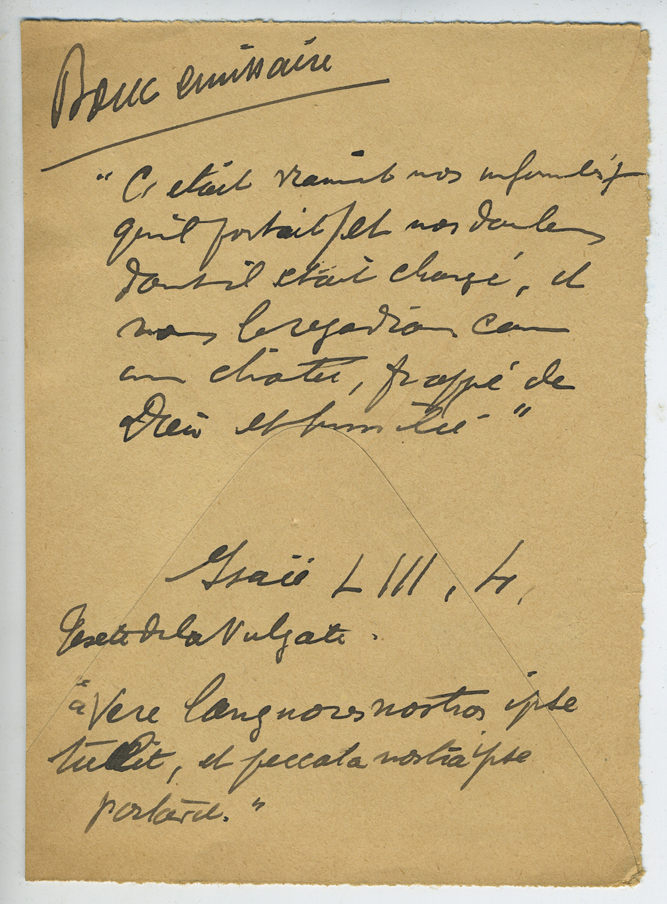 Bouc emissaire
"C'etait vraiment nos infirmités
qu'il portait, et nos douleurs
dont il etait chargé, et
nous le regardions comme
un chatié, frappé de
Dieu et humilié"
Isaïe LIII, 4,
Texte de la Vulgate.
"Vere languores nostros ipse
tulit, et peccata nostra ipse
portavit."